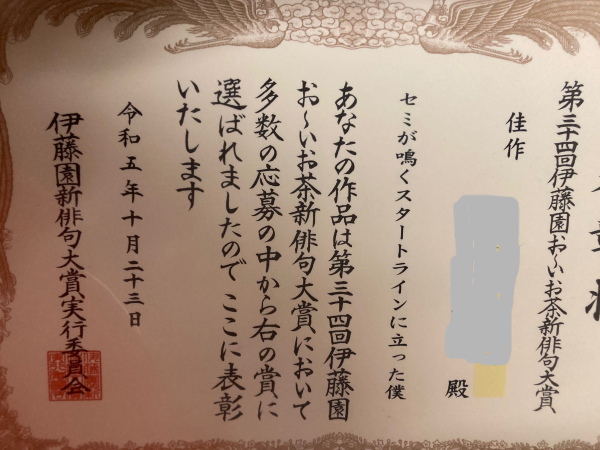 第三十四回伊藤園お〜いお茶新俳句大賞
佳作
殿
セミが鳴くスタートラインに立った僕
あなたの作品は第三十四回伊藤園
お〜いお茶新俳句大賞において
多数の応募の中から右の賞に
選ばれましたので ここに表彰
いたします
令和五年十月二十三日
伊藤園新俳句大賞実行委員会